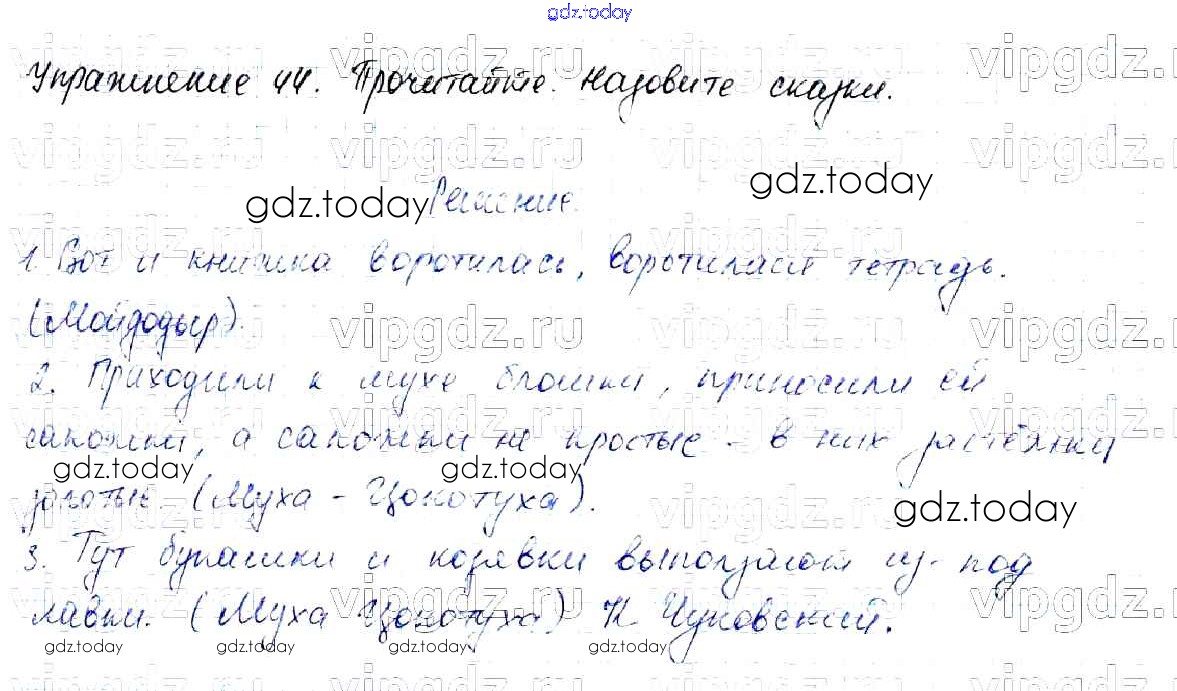 gdz.today
Упражнение 44. Прочитайте. Назовите сказки.
gdz.today Решение. gdz.today
1. Вот и книжка воротилась, воротилася тетрадь.
(Мойдодыр).
2. Приходили к мухе блошки, приносили ей
сапожки, а сапожки не простые - в них застёжки
gdz.today gdz.today gdz.today
золотые. (Муха - Цокотуха).
gdz.today
3. Тут букашки и козявки выползают из-под
лавки. (Муха Цокотуха) К Чуковский.
gdz.today gdz.today gdz.today gdz.today
vipgdz.ru